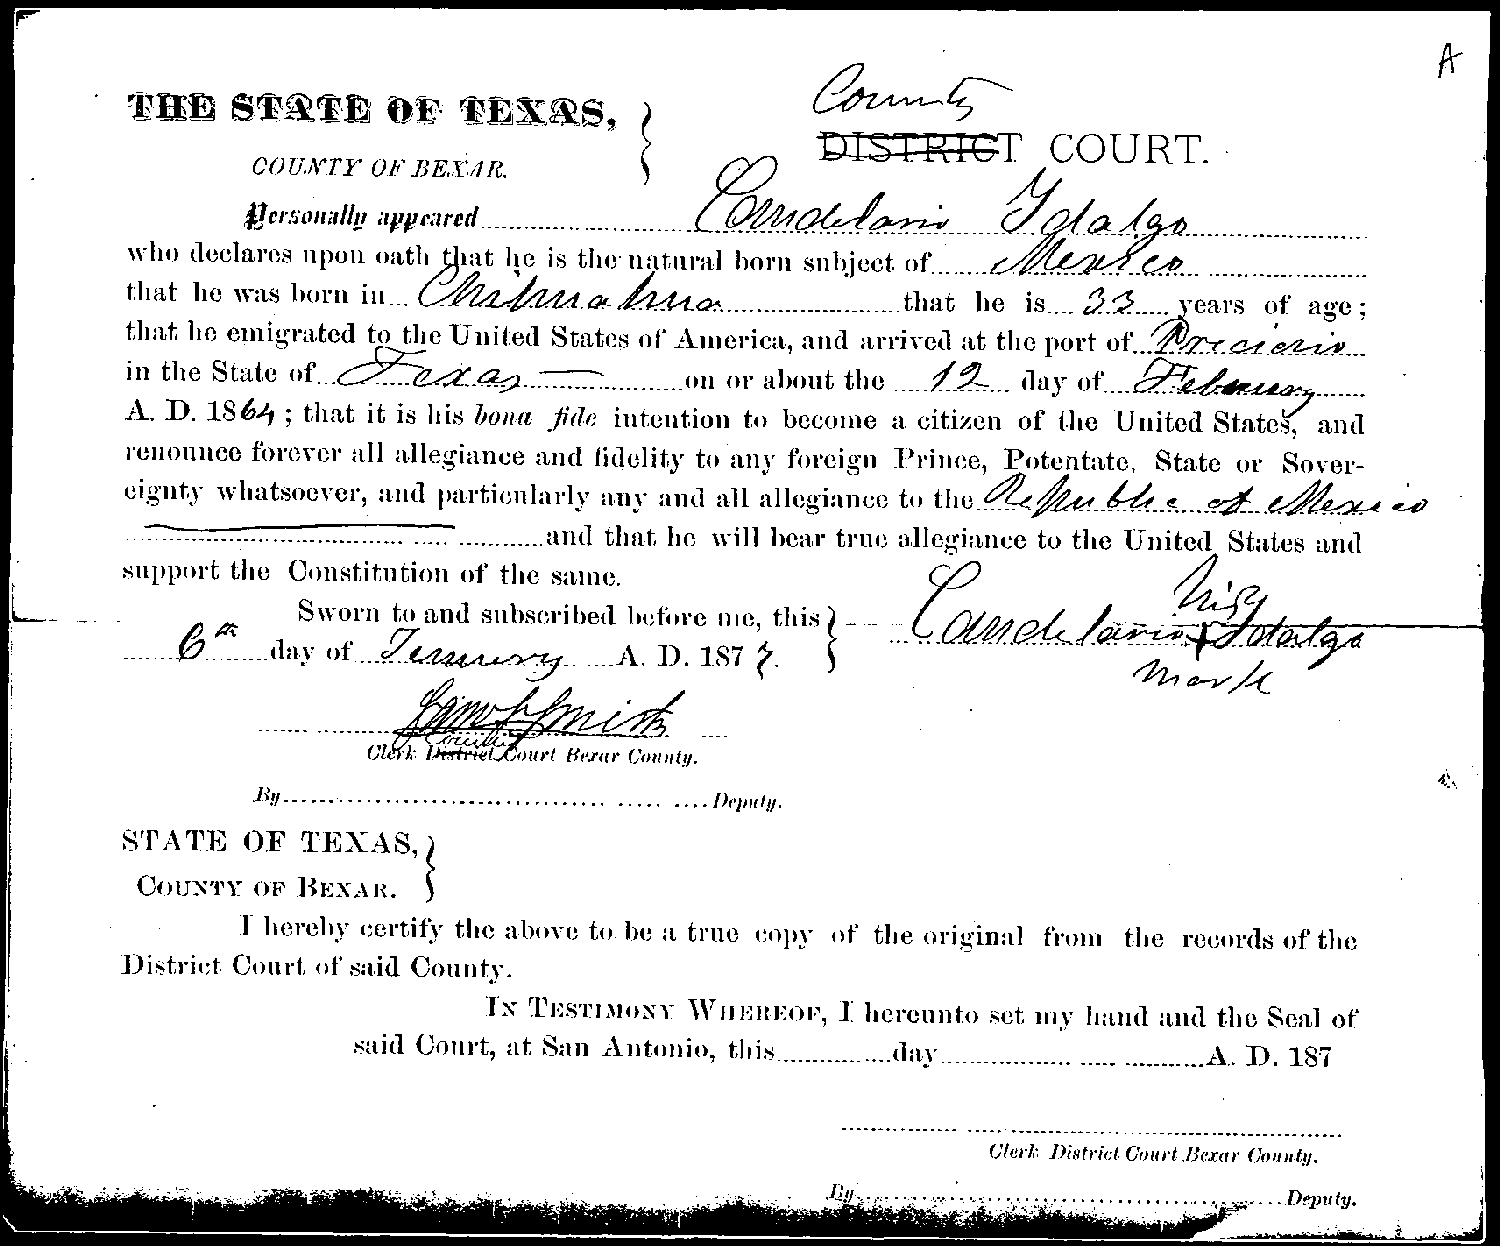 A
County
THE STATE OF TEXAS,
DISTRICT COURT.
COUNTY OF BEXAR.
Personally appeared Candelario Idalgo
who declares upon oath that he is the natural born subject of Mexico
that he was born in Chihuahua that he is 33 years of age;
that he emigrated to the United States of America, and arrived at the port of
in the State of Texas on or about the 12 day of February
A. D. 1864; that it is his bona fide intention to become a citizen of the United States, and
renounce forever all allegiance and fidelity to any foreign Prince, Potentate, State or Sover-
eignty whatsoever, and particularly any and all allegiance to the Republic of Mexico
and that he will bear true allegiance to the United States and
support the Constitution of the same.
Sworn to and subscribed before me, this
his
Candelario x Idalgo
mark
6th day of A. D. 187
Smith
County
Clerk District Court Bexar County.
By Deputy.
STATE OF TEXAS,
COUNTY OF BEXAR.
I hereby certify the above to be a true copy of the original from the records of the
District Court of said County.
IN TESTIMONY WHEREOF, I hereunto set my hand and the Seal of
said Court, at San Antonio, this day A. D. 187
Clerk District Court Bexar County.
By Deputy.